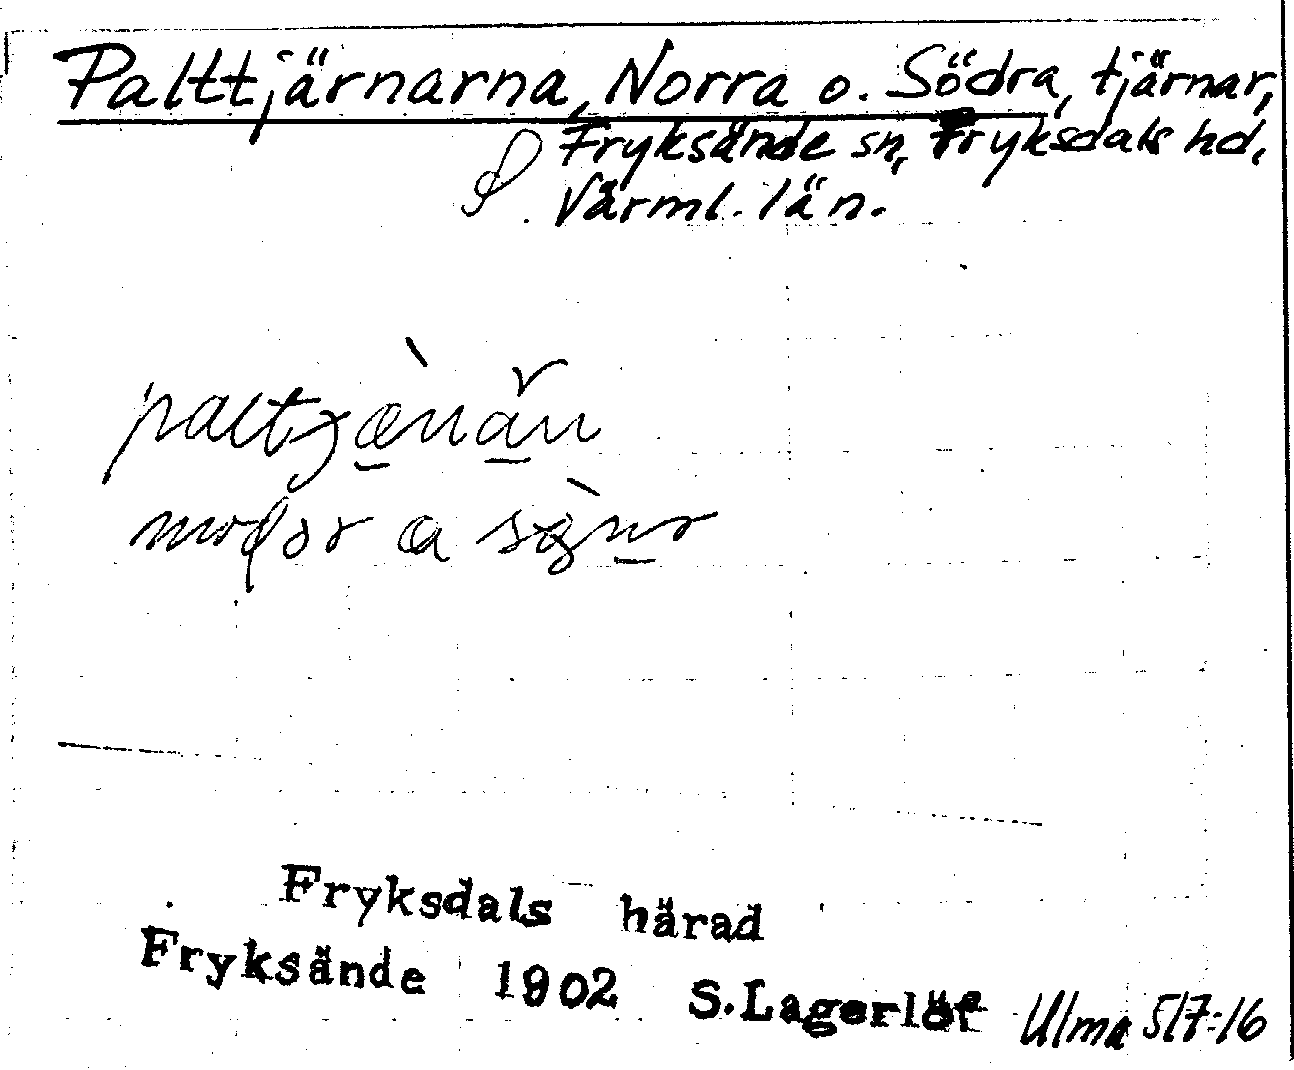 Palttjärnarna, Norra o. Södra, tjärnar,
Fryksände sn, Fryksdals hd,
Värml. län.
Fryksdals härad
Fryksände 1902 S. Lagerlöf Ulma 517:16